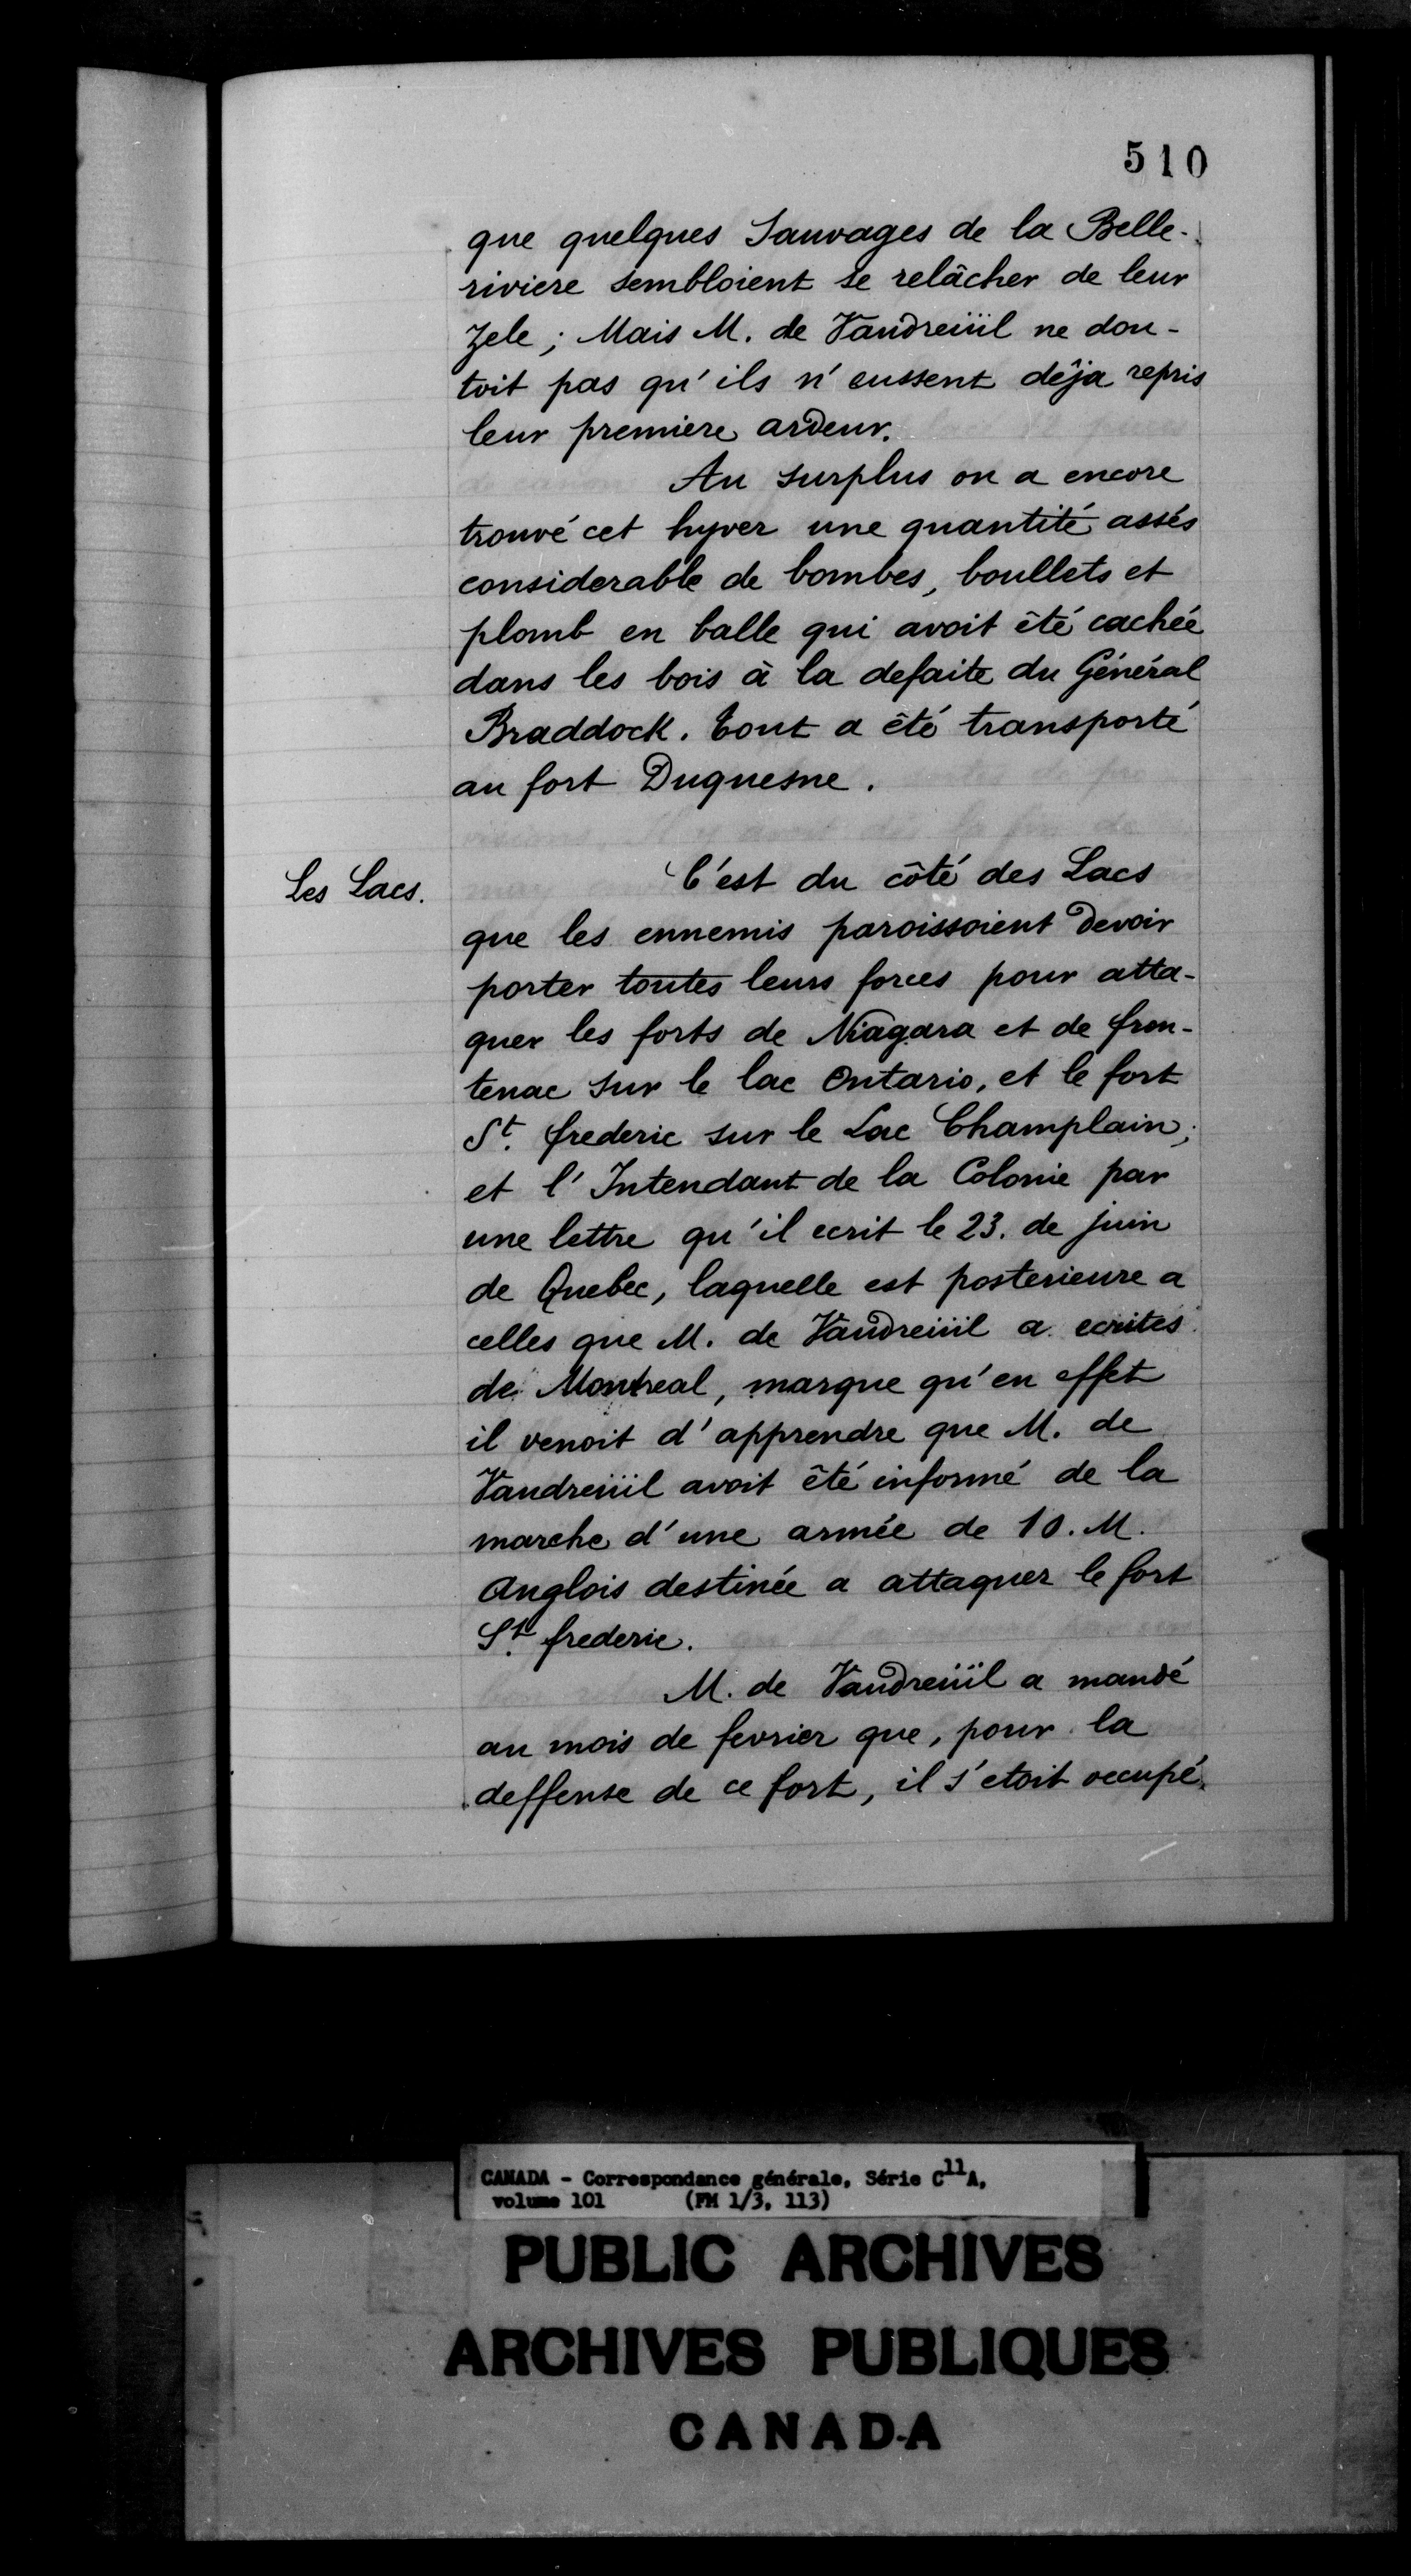 510
que quelques Sauvages de la Belle-
riviere sembloient se relâcher de leur
Zele ; Mais M. de Vaudreüil ne dou-
toit pas qu'ils n'eussent déja repris
leur premiere ardeur.
Au surplus on a encore
trouvé cet hyver une quantité assés
considerable de bombes, boullets et
plomb en balle qui avoit été cachée
dans les bois à la defaite du Général
Braddock. Tout a été transporté
au fort Duquesne.
Les Lacs.
C'est du côté des Lacs
que les ennemis paroissoient devoir
porter toutes leurs forces pour atta-
quer les forts de Niagara et de fron-
tenac sur le lac Ontario, et le fort
St. frederic sur le Lac Champlain;
et l'Intendant de la Colonie par
une lettre qu'il ecrit le 23. de juin
de Quebec, laquelle est posterieure a
celles que M. de Vaudreüil a ecrites
de Montreal, marque qu'en effet
il venoit d'apprendre que M. de
Vaudreüil avoit été informé de la
marche d'une armée de 10. M.
Anglois destinée a attaquer le fort
St. frederic.
M. de Vaudreüil a mandé
au mois de fevrier que, pour la
deffense de ce fort, il s'etoit occupé
CANADA - Correspondance générale, Série C11A,
volume 101 (FM 1/3, 113)
PUBLIC ARCHIVES
ARCHIVES PUBLIQUES
CANADA